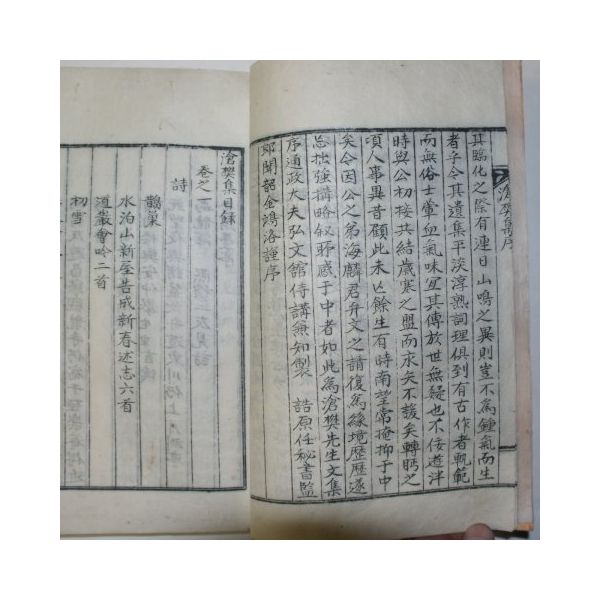 滄樊集序
其臨化之際有連日山鳴之異則豈不爲鍾氣而生
者乎今其遺集平淡淳熟詞理俱到有古作者軌範
而無俗士葷血氣味宜其傳於世無疑也不佞遊泮
時與公初接共結歲寒之盟而永矢不諼矣轉眄之
頃人事異昔顧此未亡餘生有時南望常掩抑于中
矣今因公之弟海麟君弁文之請復爲緣境歷歷遂
忘拙強搆略叙所感于中者如此爲滄樊先生文集
序通政大夫弘文館侍講兼知製誥原任秘書監
郞聞韶金鴻洛謹序
滄樊集目錄
卷之一
詩
鵲巢
水泊山新舍告成新春述志六首
道巖會吟二首
初雪